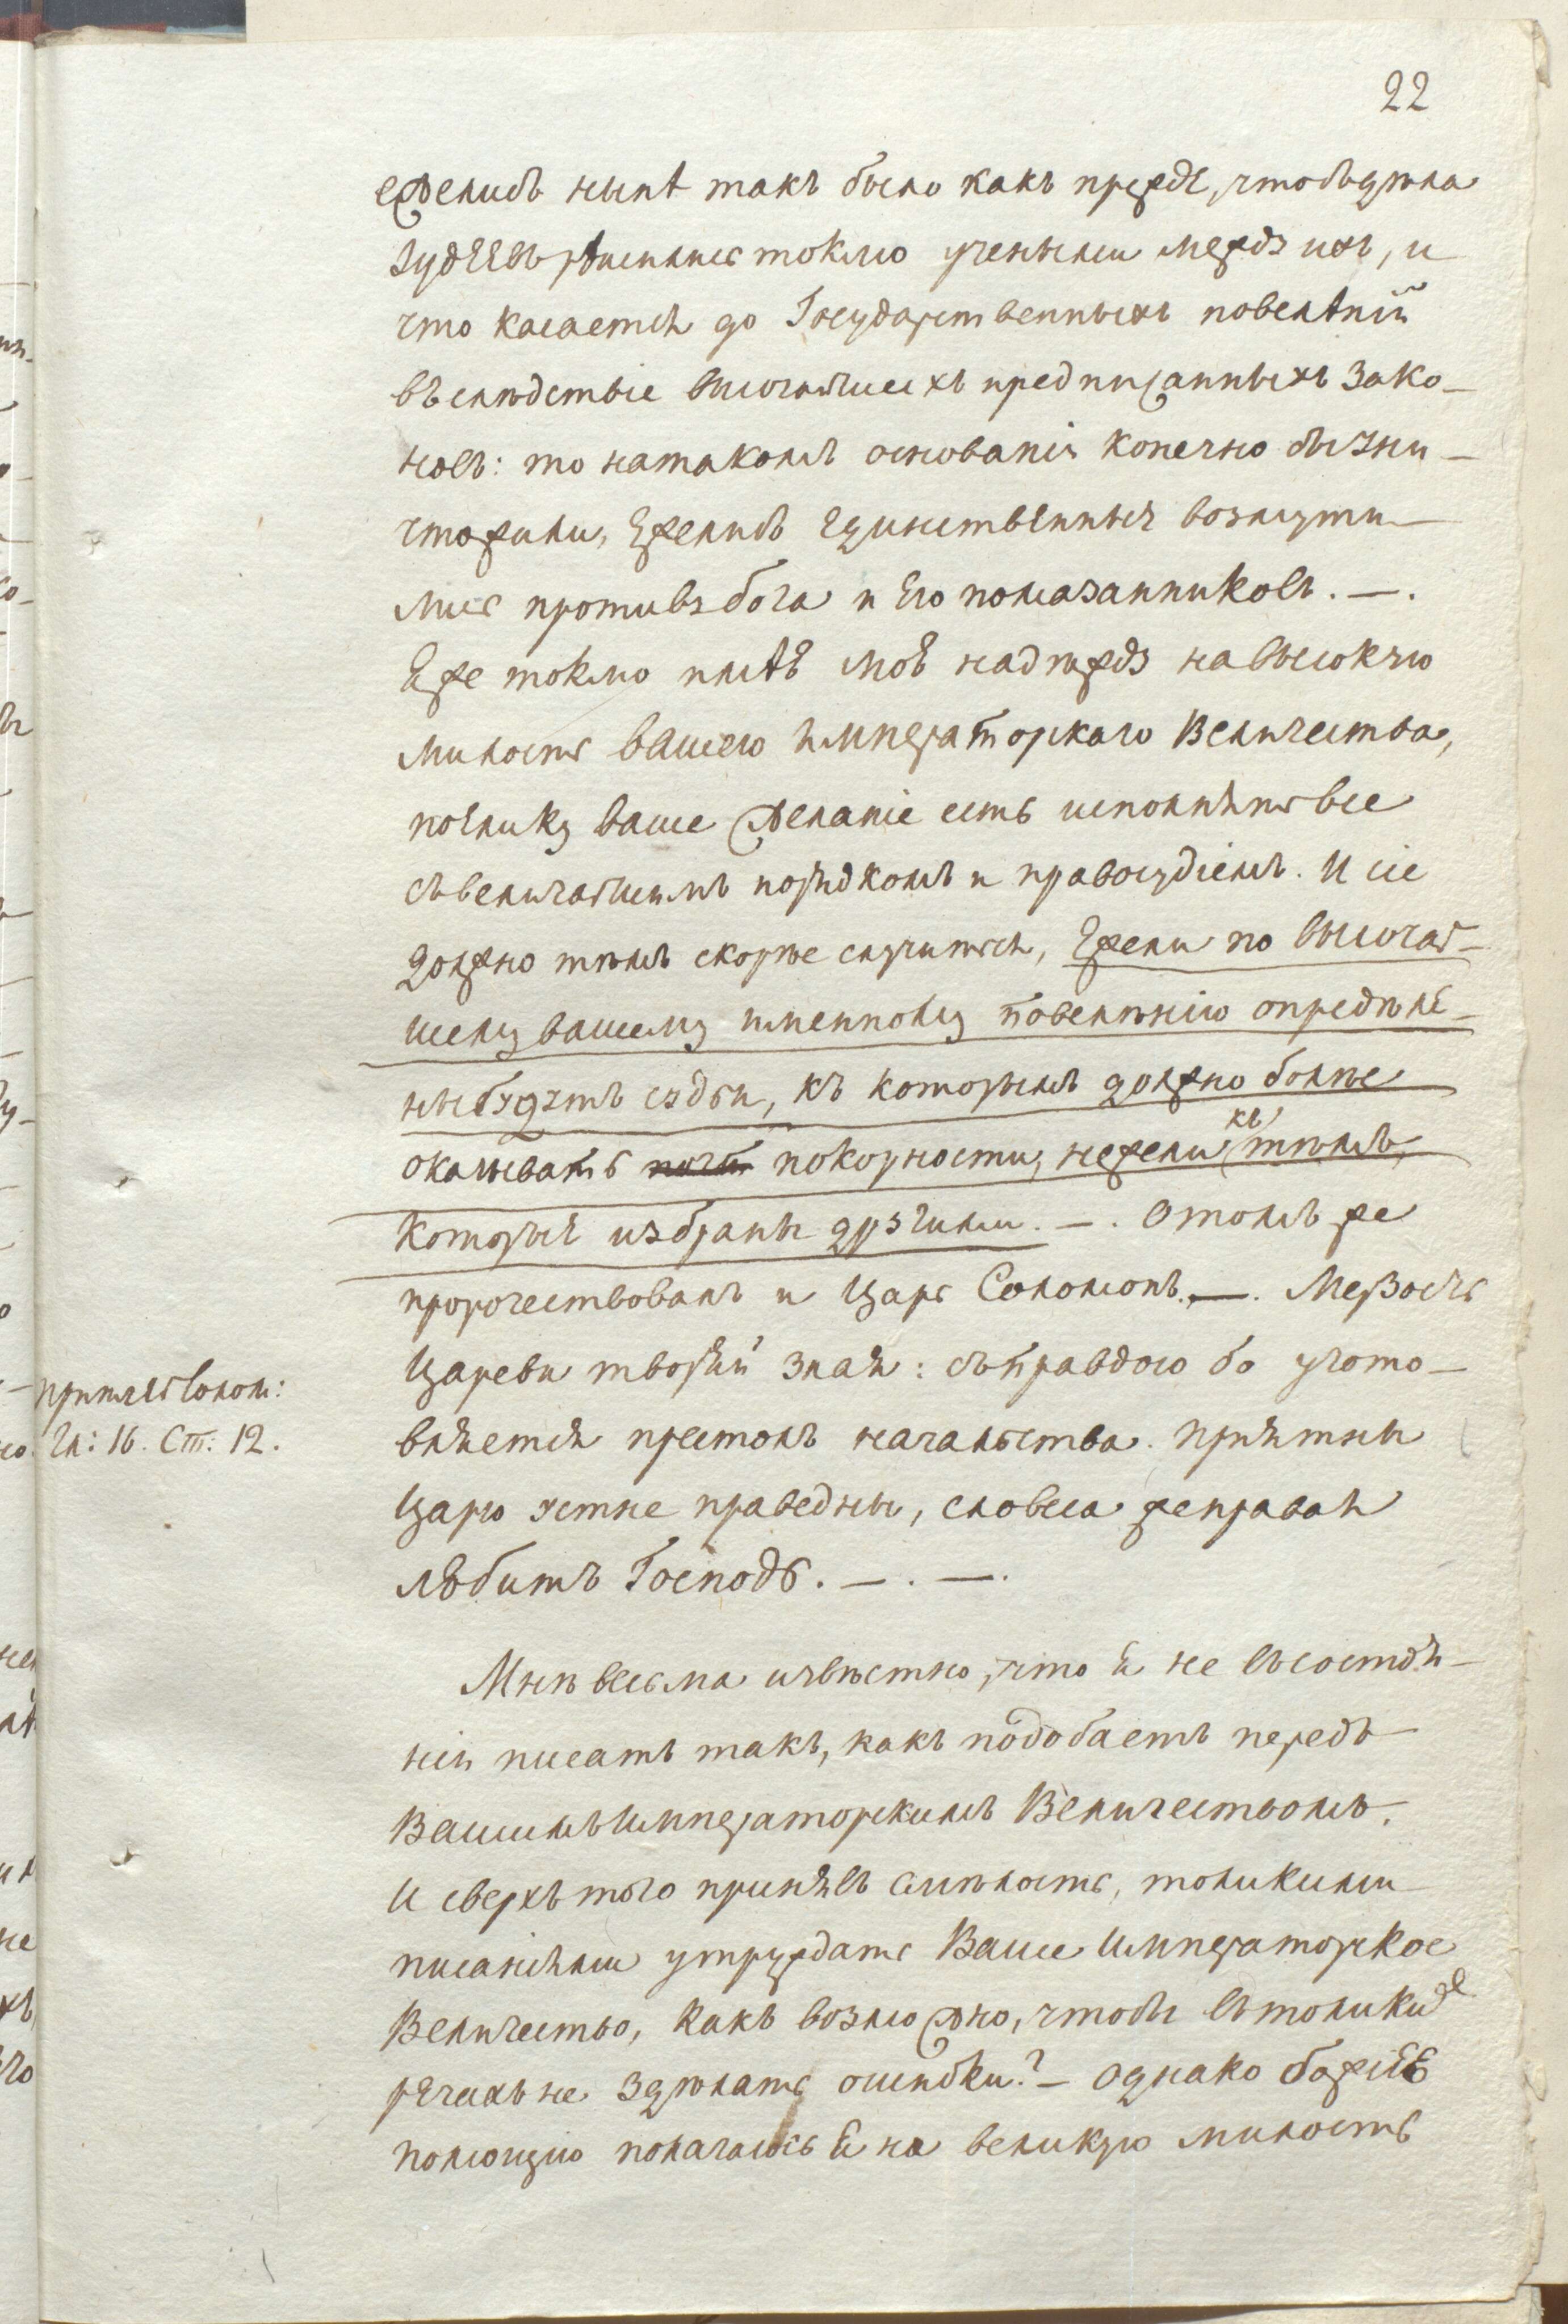 22
ежелибъ нынѣ такъ было какъ прежде, чтобъ дѣла
Іудѣевъ рѣшились токмо учеными между ихъ, и
что касается до Государственныхъ повелѣній
въ слѣдствіе высочайшихъ предписанныхъ Зако-
новъ: то на такомъ основаніи конечно бы уни-
чтожили, Ежелибъ единственные возмути-
лись противъ бога и Его помазанниковъ. —.
Еже токмо имѣю мою надежду на высокую
милость вашего Императорскаго Величества,
поелику ваше желаніе есть исполнять все
съ величайшимъ порядкомъ и правосудіемъ. И сіе
должно тѣмъ скорѣе случиться, Ежели по высочай-
шему вашему имянному повелѣнію опредѣле-
ны будутъ судьи, къ которымъ должно болѣе
оказывать покорности, нежели къ тѣмъ,
которые избраны другими. —. О томъ же
пророчествовалъ и Царь Соломонъ. —. Мерзость
Цареви творяй злая: съ правдою бо угото-
вляется престолъ начальства. Пріятны
Царю устне праведны, словеса же правая
любитъ Господь. —. —.
притчей Солом:
Гл: 16. Ст: 12.
Мнѣ весьма извѣстно, что я не въ состоя-
ніи писать такъ, какъ подобаетъ передъ
Вашимъ Императорскимъ Величествомъ.
И сверхъ того принявъ смѣлость, толикими
писаніями утруждать Ваше Императорское
Величество, какъ возможно, чтобы въ толикихъ
речахъ не здѣлать ошибки? — Однако божіею
помощію полагаюсь я на великую милость